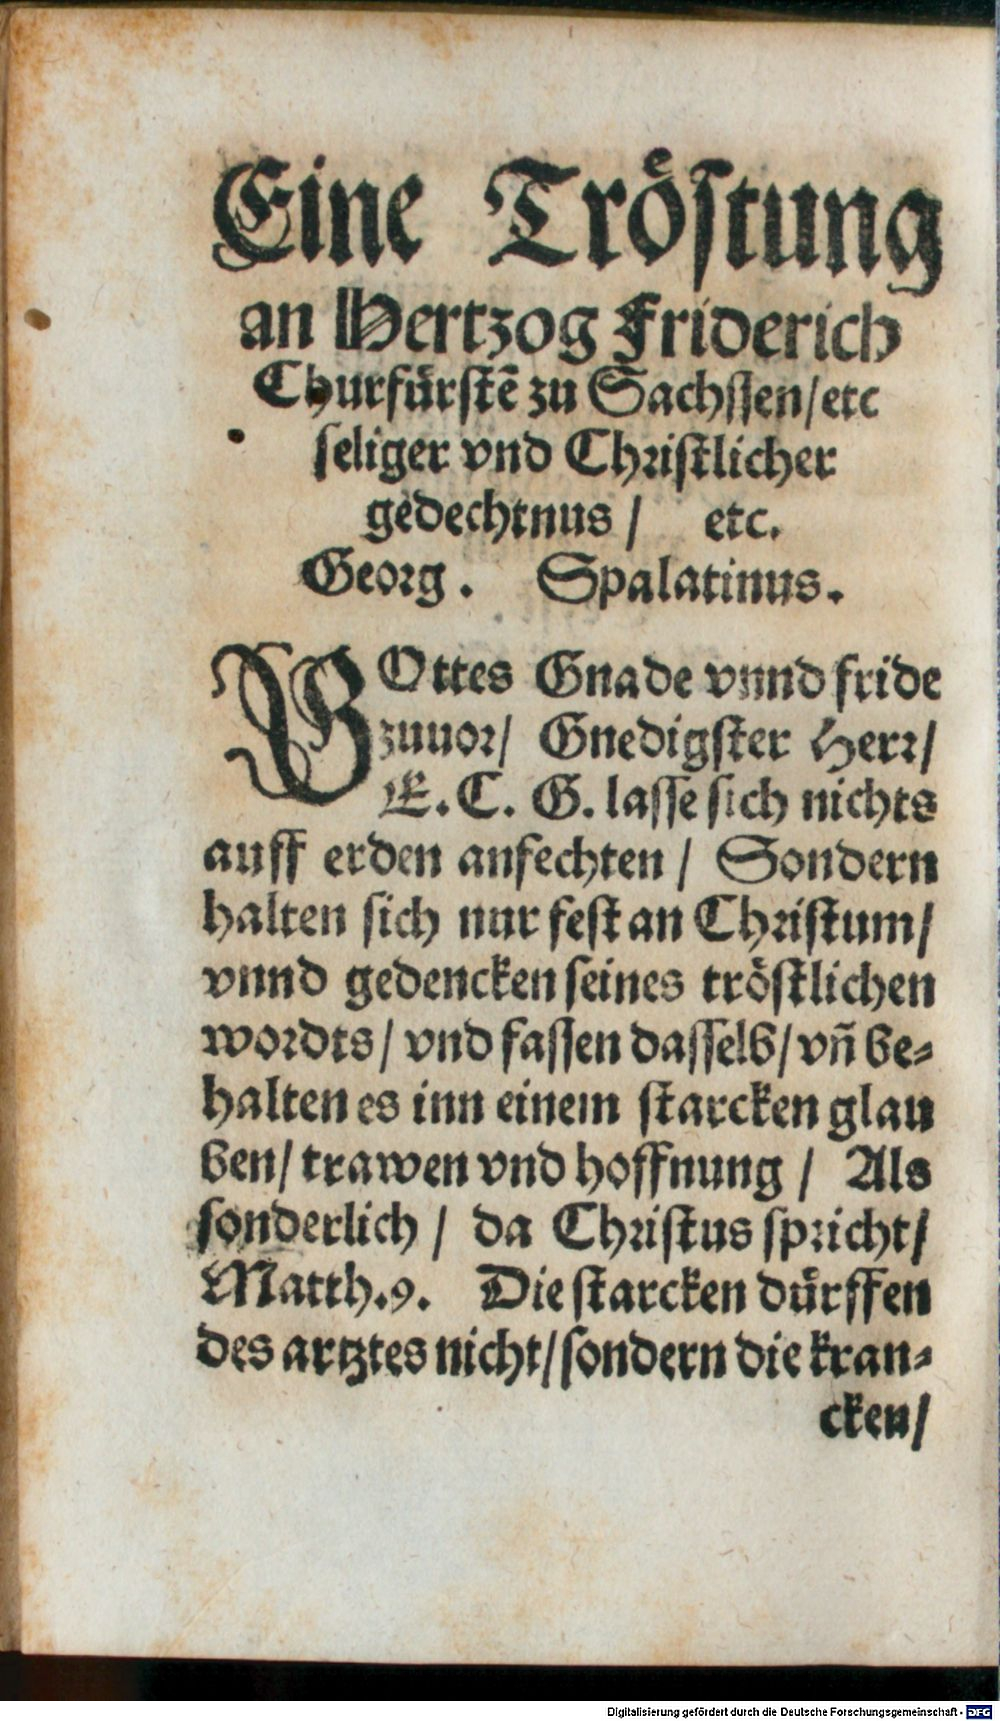 Eine Tröstung
an Hertzog Friderich
Churfürstẽ zu Sachssen/etc
seliger vnd Christlicher
gedechtnus / etc.
Georg. Spalatinus.
GOttes Gnade vnnd fride
zuuor/ Gnedigster Herr/
E. C. G. lasse sich nichts
auff erden anfechten / Sondern
halten sich nur fest an Christum/
vnnd gedencken seines tröstlichen
wordts/ vnd fassen dasselb/ vñ be⸗
halten es inn einem starcken glau
ben/ trawen vnd hoffnung / Als
sonderlich / da Christus spricht/
Matth.9. Die starcken dürffen
des artztes nicht/ sondern die kran⸗
cken/
Digitalisierung gefördert durch die Deutsche Forschungsgemeinschaft - DFG